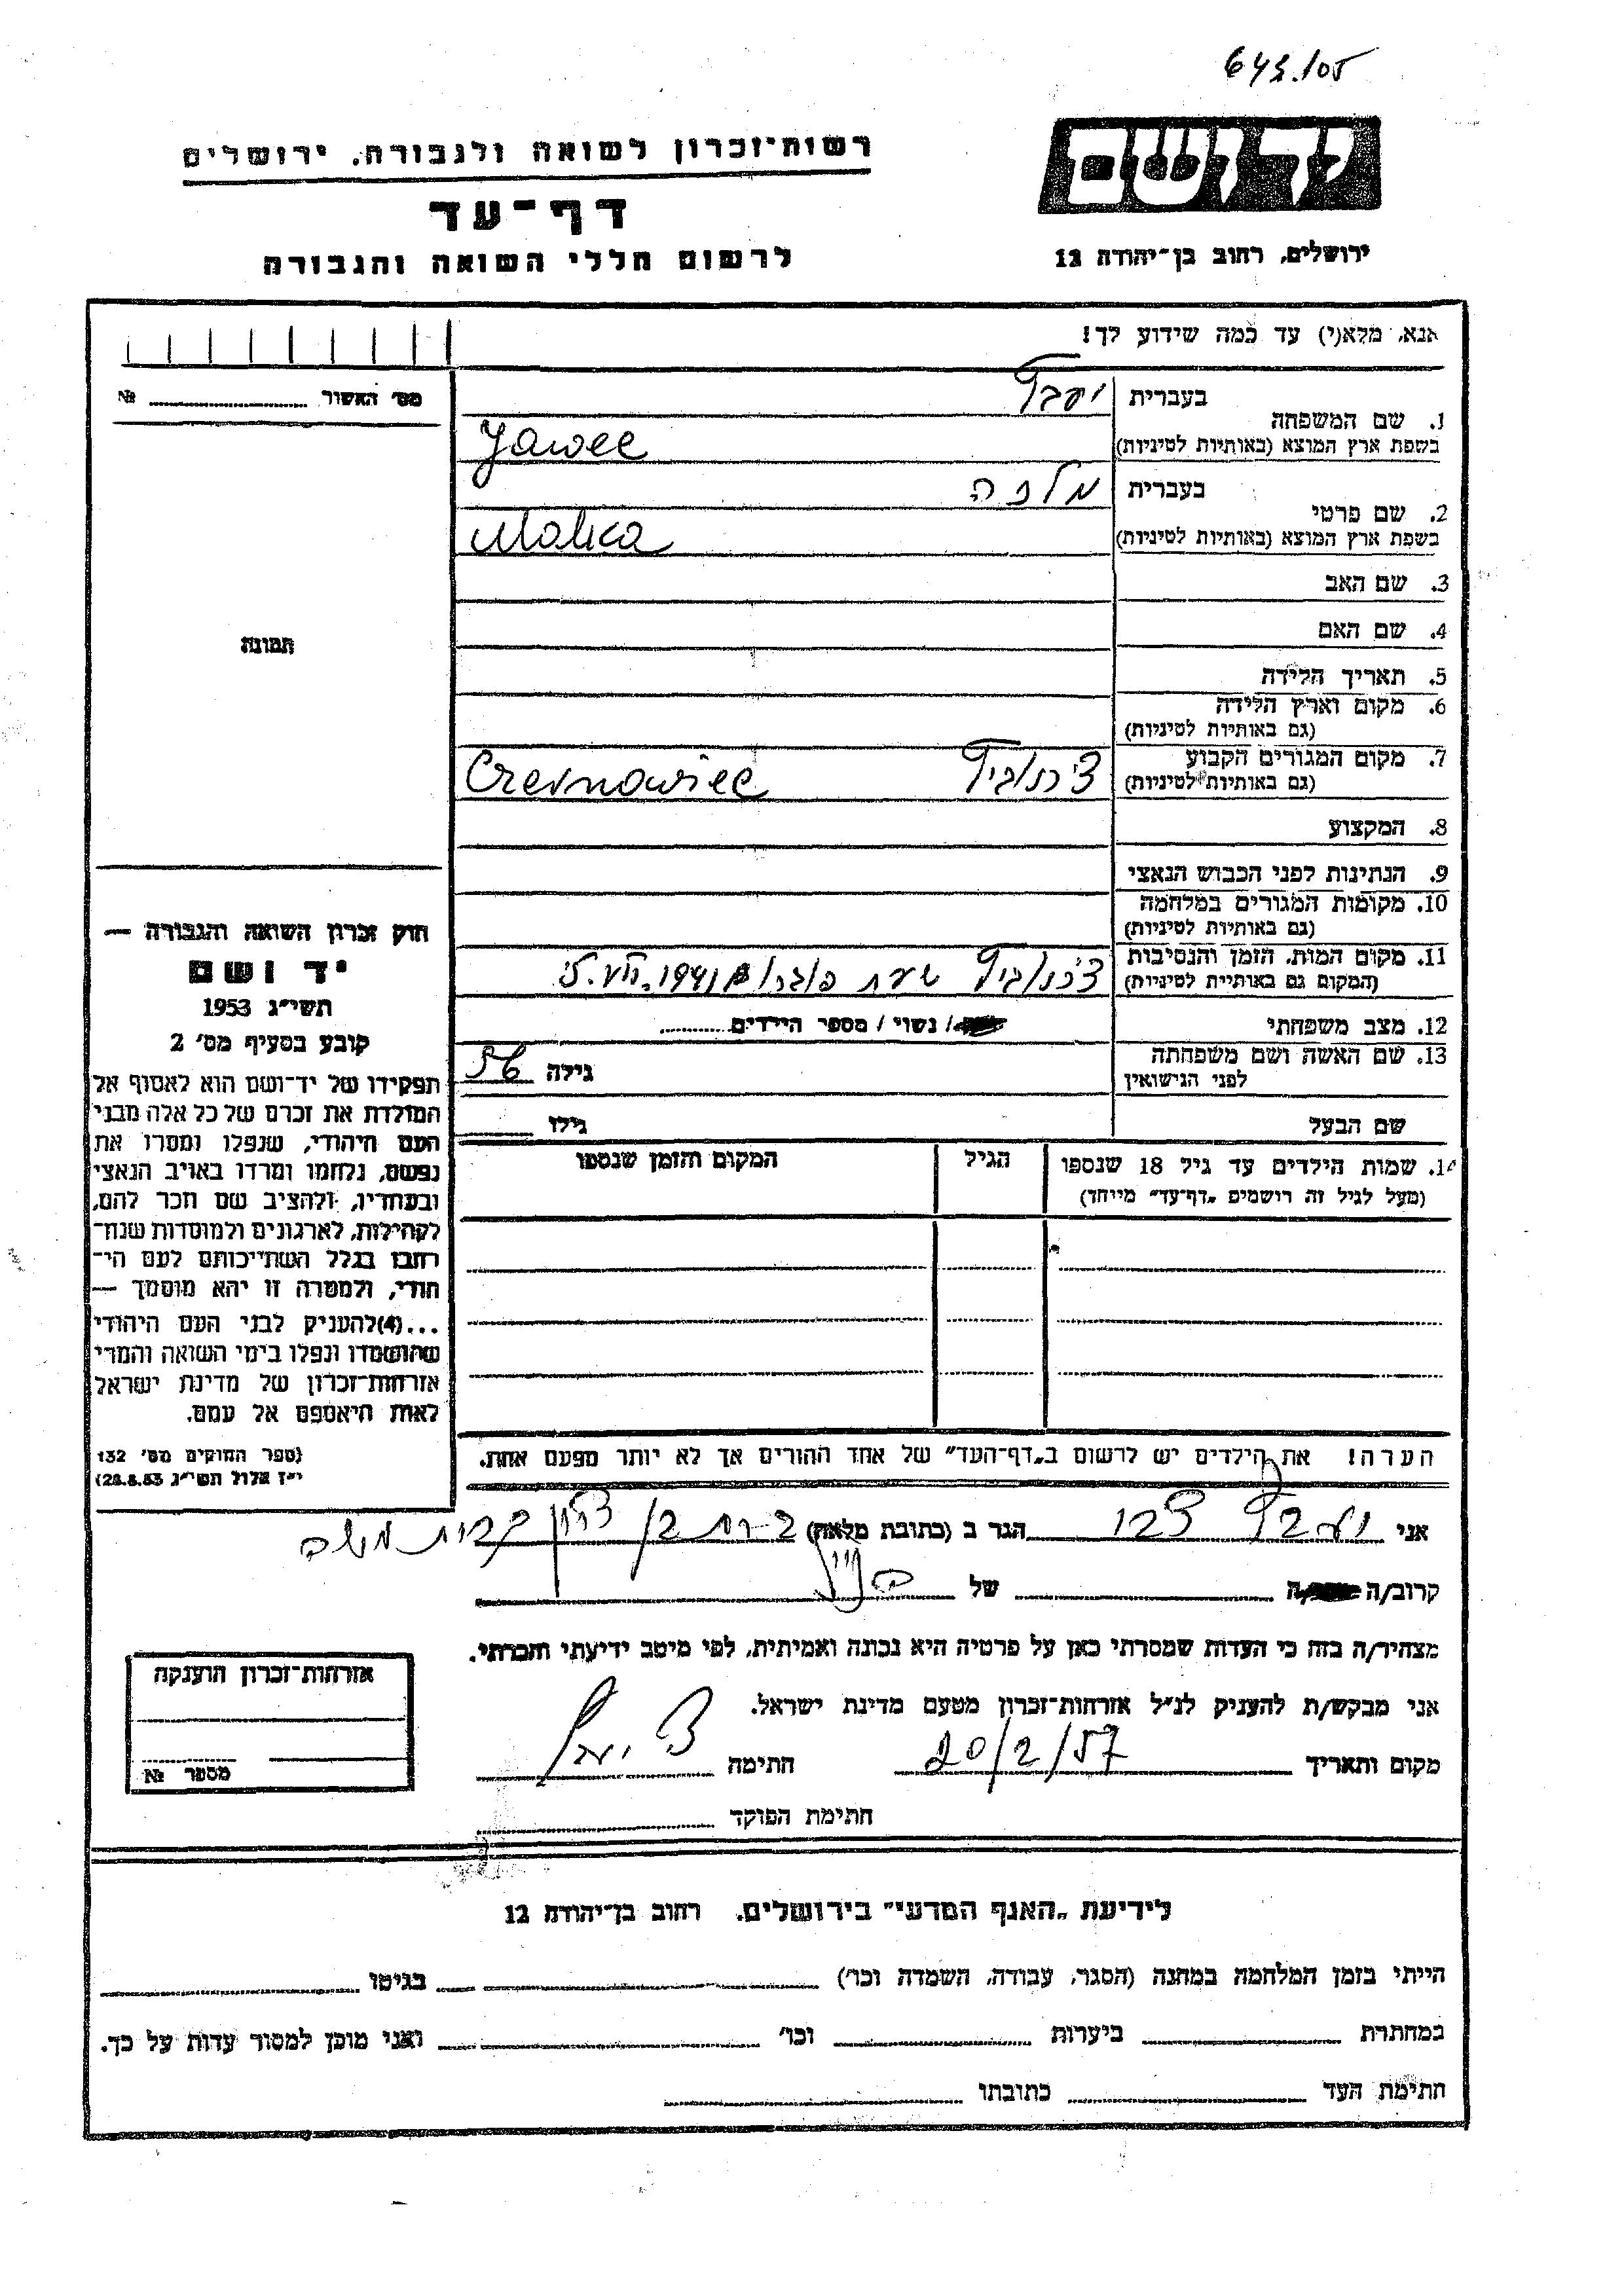 643.105
יד ושם
רשות־זכרון לשואה ולגבורה, ירושלים
דף־עד
לרשום חללי השואה והגבורה
ירושלים, רחוב בן־יהודה 12
אנא, מלא(י) עד כמה שידוע לך!
מס׳ האשור № 
1. שם המשפחה
בעברית
בשפת ארץ המוצא (באותיות לטיניות) Jawec
2. שם פרטי
בעברית מלכה
בשפת ארץ המוצא (באותיות לטיניות) Malka
3. שם האב
4. שם האם
5. תאריך הלידה
6. מקום וארץ הלידה
(גם באותיות לטיניות)
7. מקום המגורים הקבוע
(גם באותיות לטיניות) Czernowiec
8. המקצוע
9. הנתינות לפני הכבוש הנאצי
10. מקומות המגורים במלחמה
(גם באותיות לטיניות)
11. מקום המות, הזמן והנסיבות
(המקום גם באותיות לטיניות) 1941
12. מצב משפחתי / נשוי / מספר הילדים
13. שם האשה ושם משפחתה
לפני הנישואין
גילה 56
שם הבעל
גילו
14. שמות הילדים עד גיל 18 שנספו
(מעל לגיל זה רושמים „דף־עד" מייחד)
הגיל
המקום והזמן שנספו
הערה! את הילדים יש לרשום ב„דף־העד" של אחד ההורים אך לא יותר מפעם אחת.
תמונה
חוק זכרון השואה והגבורה —
יד ושם
תשי״ג 1953
קובע בסעיף מס׳ 2
תפקידו של יד־ושם הוא לאסוף אל
המולדת את זכרם של כל אלה מבני
העם היהודי, שנפלו ומסרו את
נפשם, נלחמו ומרדו באויב הנאצי
ובעוזריו, ולהציב שם וזכר להם,
לקהילות, לארגונים ולמוסדות שנח־
רחבו בגלל השתייכותם לעם הי־
הודי, ולמטרה זו יהא מוסמך —
...(4)להעניק לבני העם היהודי
שהושמדו ונפלו בימי השואה והמרי
אזרחות־זכרון של מדינת ישראל
לאות היאספם אל עמם.
(ספר החוקים מס׳ 132
י״ז אלול תשי״ג 28.8.53)
אני
הגר ב (כתובת מלאה)
קרוב/ה של
מצהיר/ה בזה כי העדות שמסרתי כאן על פרטיה היא נכונה ואמיתית, לפי מיטב ידיעתי והכרתי.
אני מבקש/ת להעניק לנ״ל אזרחות־זכרון מטעם מדינת ישראל.
מקום ותאריך 20/2/57 חתימה
חתימת הפוקד
אזרחות־זכרון הוענקה
מספר №
לידיעת „האגף המדעי" בירושלים, רחוב בן־יהודה 12
הייתי בזמן המלחמה במחנה (הסגר, עבודה, השמדה וכו׳) בגיטו
במחתרת ביערות וכו׳ ואני מוכן למסור עדות על כך.
חתימת העד כתובתו